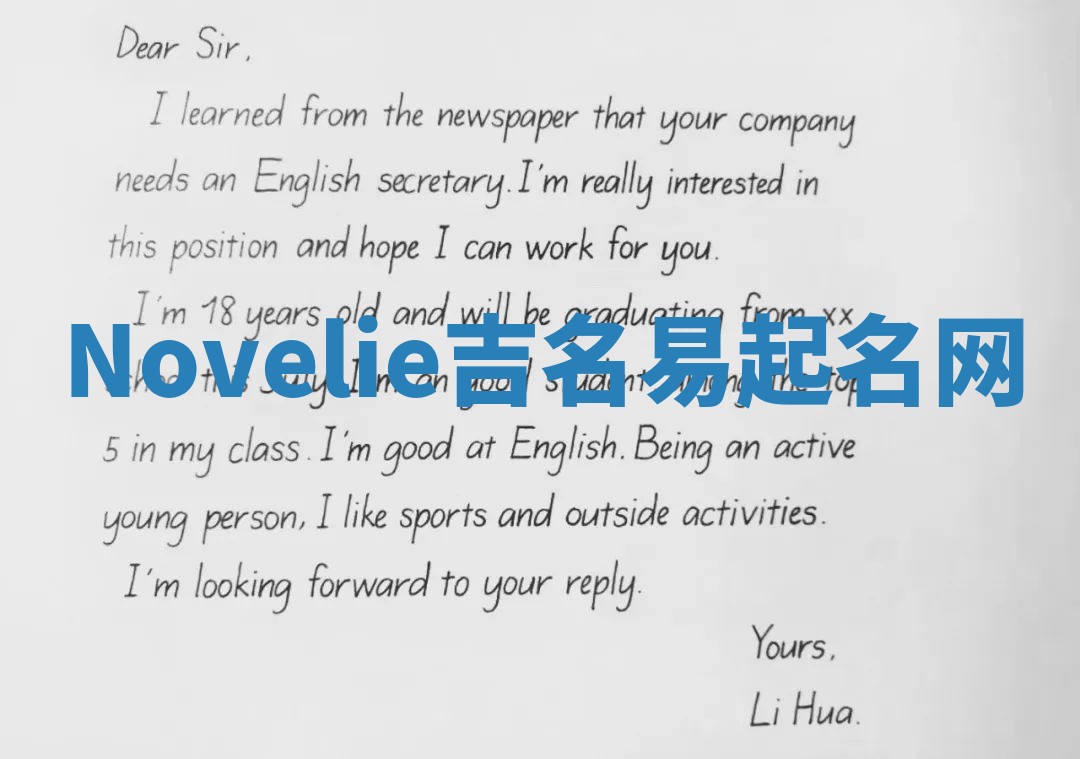 Dear Sir,
I learned from the newspaper that your company
needs an English secretary. I'm really interested in
this position and hope I can work for you.
I'm 18 years old and will be graduating from xx
Novelie吉名易起名网
school this July. I'm an good student among the top
5 in my class. I'm good at English. Being an active
young person, I like sports and outside activities.
I'm looking forward to your reply.
Yours,
Li Hua.